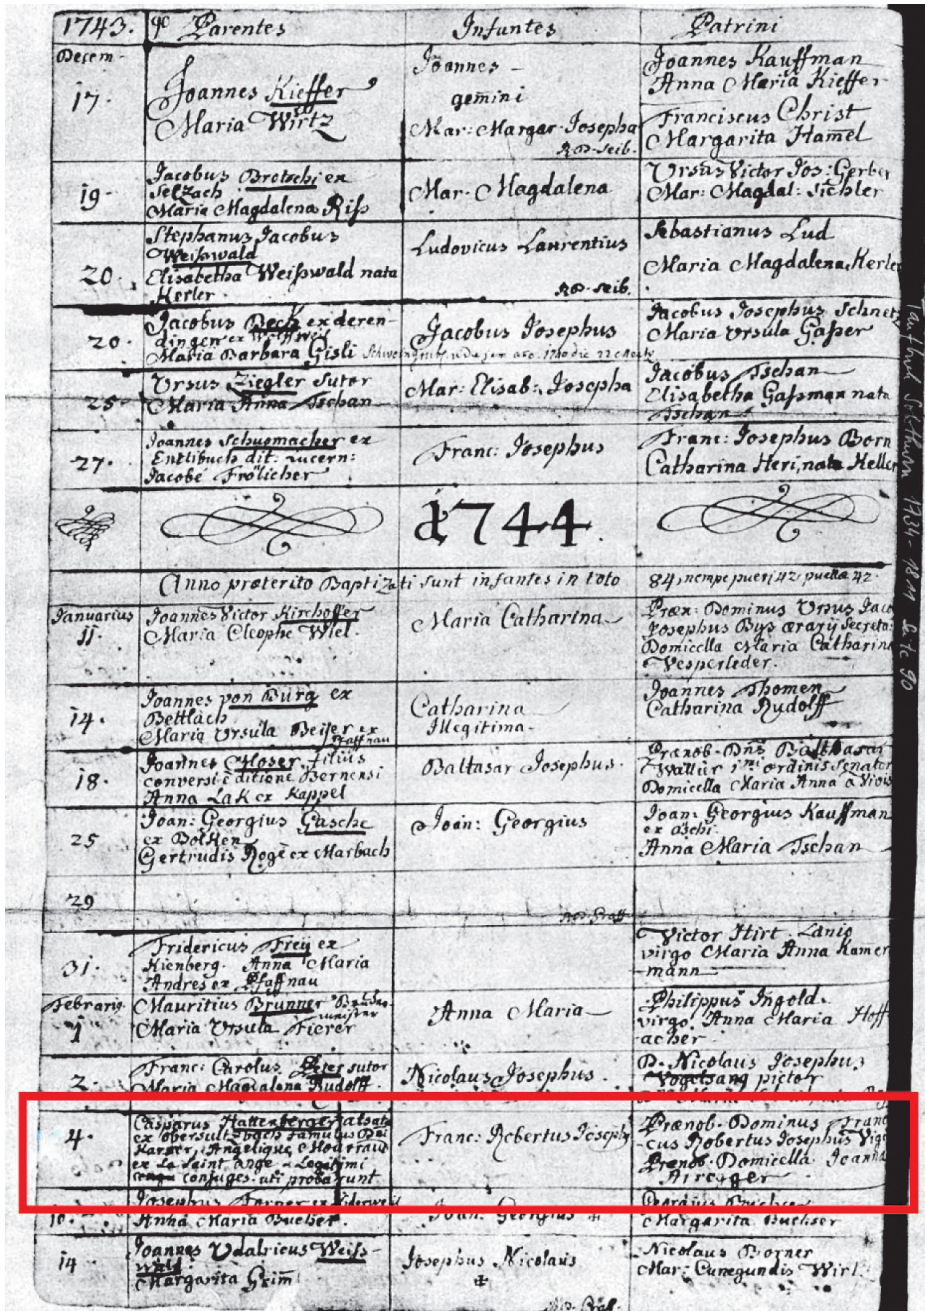 1743. Parentes Infantes Patrini
Decem-
17.
Joannes Kieffer
Maria Wirtz
Joannes
gemini
Mar: Margar: Josepha
Joannes Kauffman
Anna Maria Kieffer
Franciscus Christ
Margarita Hamel
19.
Jacobus Brotschi ex
Selzach
Maria Magdalena Riß
Mar: Magdalena
Ursus Victor Jos: Gerber
Mar: Magdal: Sichler
20.
Stephanus Jacobus
Weißwald
Elisabetha Weißwald nata
Kerler
Ludovicus Laurentius
Sebastianus Lud
Maria Magdalena Kerler
20.
Jacobus Beck ex deren-
dingen ex
Maria Barbara Gisli
Jacobus Josephus
Jacobus Josephus
Maria Ursula Gaßer
25
Ursus Ziegler Sutor
Maria Anna Tschan
Mar: Elisab: Josepha
Jacobus Tschan
Elisabetha Gaßman nata
Tschan
27.
Joannes Schuomacher ex
Entlibuch dit: Lucern:
Jacobé Frölicher
Franc: Josephus
Franc: Josephus Born
Catharina Heri, nata Keller
1744.
Anno præterito Baptizati sunt infantes in toto 84, nempe pueri 42, puellæ 42.
Januarius
11.
Joannes Victor Kirchoffer
Maria Cleophe Wiel
Maria Catharina
Dominus Ursus Jaco
Josephus Bys ærarÿ Secreta:
Domicella Maria Catharina
Vesperleder.
14.
Joannes von Burg ex
Bettlach
Maria Ursula Beißer ex
Pfaffnau
Catharina
Illegitima.
Joannes Thomen
Catharina Rudolff
18.
Joannes Moser filius
conversi e ditione Bernensi
Anna Lak ex Kappel
Baltasar Josephus.
Prænob. Balthasar
Wallier ordinis Senator
Domicella Maria Anna a
25
Joan: Georgius Gasche
ex Bolken
Gertrudis Roge ex Marbach
Joan: Georgius
Joan: Georgius Kauffman
Anna Maria Tschan
29
31.
Fridericus Freÿ ex
Kienberg. Anna Maria
Andres ex Pfaffnau
Victor Hirt. Lanio
virgo Maria Anna Kamer
mann
Februarig
1
Mauritius Brunner
Maria Ursula Fierer
Anna Maria
Philippus Ingold.
virgo Anna Maria Hoff
acher.
2.
Franc: Carolus sutor
Maria Magdalena Rudolff
Nicolaus Josephus.
D. Nicolaus Josephus
Vogelsang pictor
4.
Casparus Hattenberger
ex famulus
Angelique
ex Le Saint Ange. Legitimi
conjuges uti probarunt.
Franc: Robertus Joseph
Prænob. Dominus Franc
cus Robertus Josephus
Prænob. Domicella Joanna
10.
Josephus
Anna Maria Bucher
Joan: Georgius
Margarita Buchser
14
Joannes Udalricus Weiß-
wald
Margarita Grim
Josephus Nicolaus
Nicolaus Borner
Mar: Cunegundis Wirt
1734-1811
90